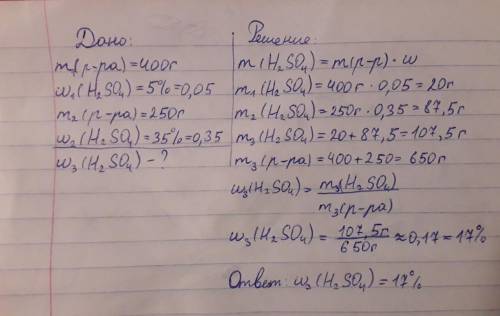 Дано:
m₁(р-ра)=400г
w₁(H₂SO₄)=5%=0,05
m₂(р-ра)=250г
w₂(H₂SO₄)=35%=0,35
w₃(H₂SO₄)-?
Решение:
m(H₂SO₄)=m(р-р)·w
m₁(H₂SO₄)=400г·0,05=20г
m₂(H₂SO₄)=250г·0,35=87,5г
m₃(H₂SO₄)=20+87,5=107,5г
m₃(р-ра)=400+250=650г
w₃(H₂SO₄)=m₃(H₂SO₄)
m₃(р-ра)
w₃(H₂SO₄)=107,5г/650г≈0,17=17%
Ответ: w₃(H₂SO₄)=17%